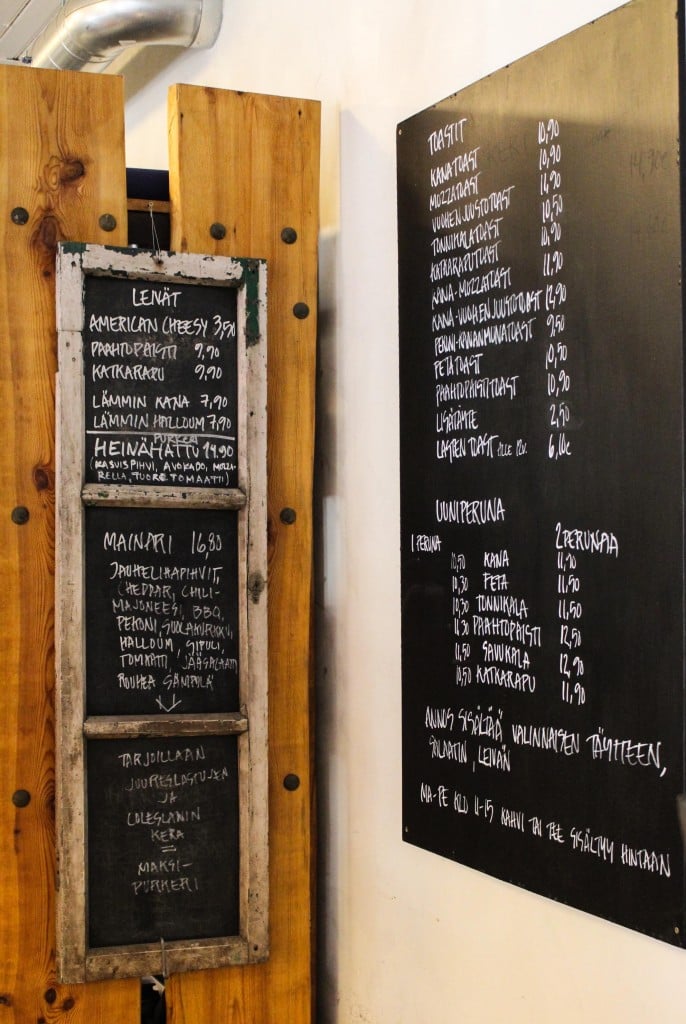 LEIVÄT
AMERICAN CHEESY 3,50
PAAHTOPAISTI 9,90
KATKARAPU 9,90
LÄMMIN KANA 7,90
LÄMMIN HALLOUM 7,90
PURKERI
HEINÄHATTU 14.90
(KASVISPIHVI, AVOKADO, MOZZA-
RELLA, TUORE TOMAATTI)
MAINARI 16,80
JAUHELIHAPIHVIT,
CHEDDAR, CHILI-
MAJONEESI, BBQ,
PEKONI, SUOLAKURKKU,
HALLOUM, SIPULI,
TOMAATTI, JÄÄSALAATTI
ROUHEA SÄMPYLÄ
TARJOILLAAN
JUURESLASTUJEN
JA
COLESLAWIN
KERA
=
MAKSI-
PURKERI
TOASTIT 10,90
KANATOAST 10,90
MOZZATOAST
VUOHENJUUSTOTOAST 10,50
TONNIKALATOAST 10,90
KATKARAPUTOAST 11,90
KANA-MOZZATOASTI
KANA-VUOHENJUUSTOTOAST 12,90
PEKONI-KANANMUNATOAST 9,50
FETATOAST 10,50
PAAHTOPAISTITOAST 10,90
LISÄTÄYTE 2,50
LASTEN TOAST ALLE 12V. 6,10€
UUNIPERUNA
1 PERUNA 2 PERUNAA
10,50 KANA 11,90
10,30 FETA 11,50
10,30 TONNIKALA 11,50
11,30 PAAHTOPAISTI 12,50
11,50 SAVUKALA 12,90
10,50 KATKARAPU 11,90
ANNOS SISÄLTÄÄ VALINNAISEN TÄYTTEEN,
SALAATIN, LEIVÄN
MA-PE KLO 11-15 KAHVI TAI TEE SISÄLTYY HINTAAN